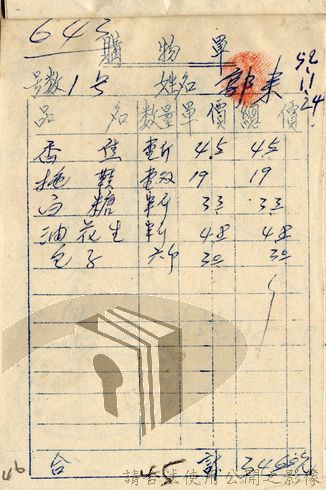 645
購物單
52.11.24
号数 1号 姓名 郭来
品名 数量 單價 總價
香蕉 壹斤 45 45
拖鞋 壹双 19 19
白糖 半斤 33 33
油花生 半斤 48 48
包子 六个 30 30
合計
45
46
請合法使用公開之影像